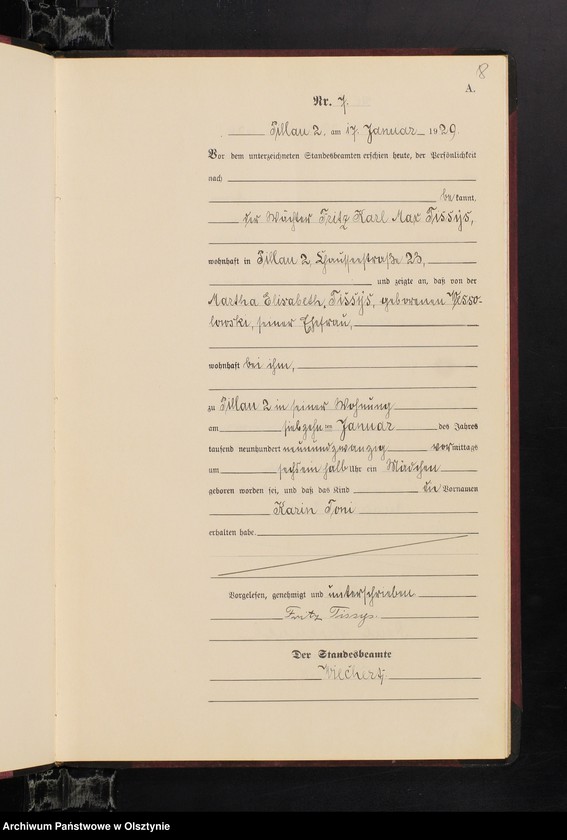 8
A.
Nr. 7.
Pillau 2, am 17. Januar 1929
Vor dem unterzeichneten Standesbeamten erschien heute, der Persönlichkeit
nach
bekannt,
der Wächter Fritz Karl Max Tissÿs,
wohnhaft in Pillau 2, Chausseestraße 23,
und zeigte an, daß von der
Martha Elisabeth Tissÿs, geborenen Wesso-
lowski, seiner Ehefrau,
wohnhaft bei ihm,
zu Pillau 2 in seiner Wohnung
am siebzehnten Januar des Jahres
tausend neunhundert neunundzwanzig vormittags
um sechseinhalb Uhr ein Mädchen
geboren worden sei, und daß das Kind die Vornamen
Karin Toni
erhalten habe.
Vorgelesen, genehmigt und unterschrieben
Fritz Tissys.
Der Standesbeamte
Archiwum Państwowe w Olsztynie